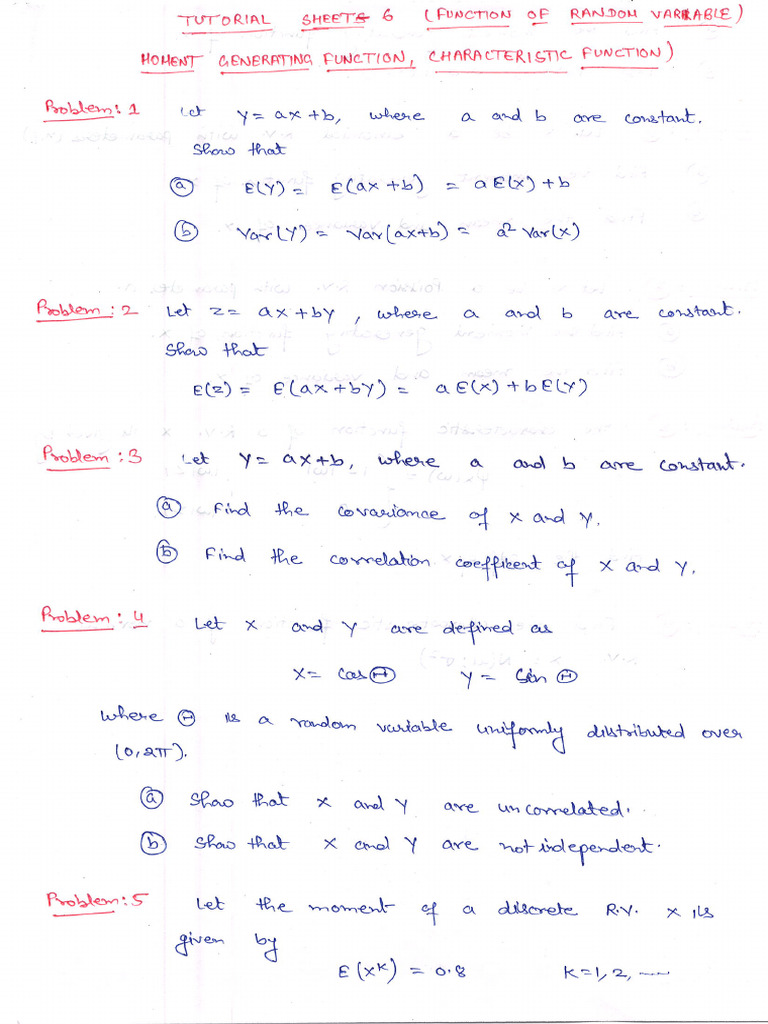 TUTORIAL SHEETS 6 (FUNCTION OF RANDOM VARIABLE)
MOMENT GENERATING FUNCTION, CHARACTERISTIC FUNCTION)
Problem: 1 Let Y= ax+b, where a and b are constant.
Show that
(a) E(Y) = E(ax+b) = a E(x) + b
(b) Var(Y) = Var(ax+b) = a² Var(x)
Problem: 2 Let Z= ax+by, where a and b are constant.
Show that
E(Z) = E(ax+by) = a E(x) + b E(Y)
Problem: 3 Let Y= ax+b, where a and b are constant.
(a) Find the covariance of X and Y.
(b) Find the correlation coefficent of X and Y.
Problem: 4 Let X and Y are defined as
X= cos Θ Y= Sin Θ
where Θ is a random variable uniformly distributed over
(0, 2π).
(a) Show that X and Y are uncorrelated.
(b) Show that X and Y are not independent.
Problem: 5 Let the moment of a discrete R.V. X is
given by
E(X^K) = 0.8 K=1, 2, ----